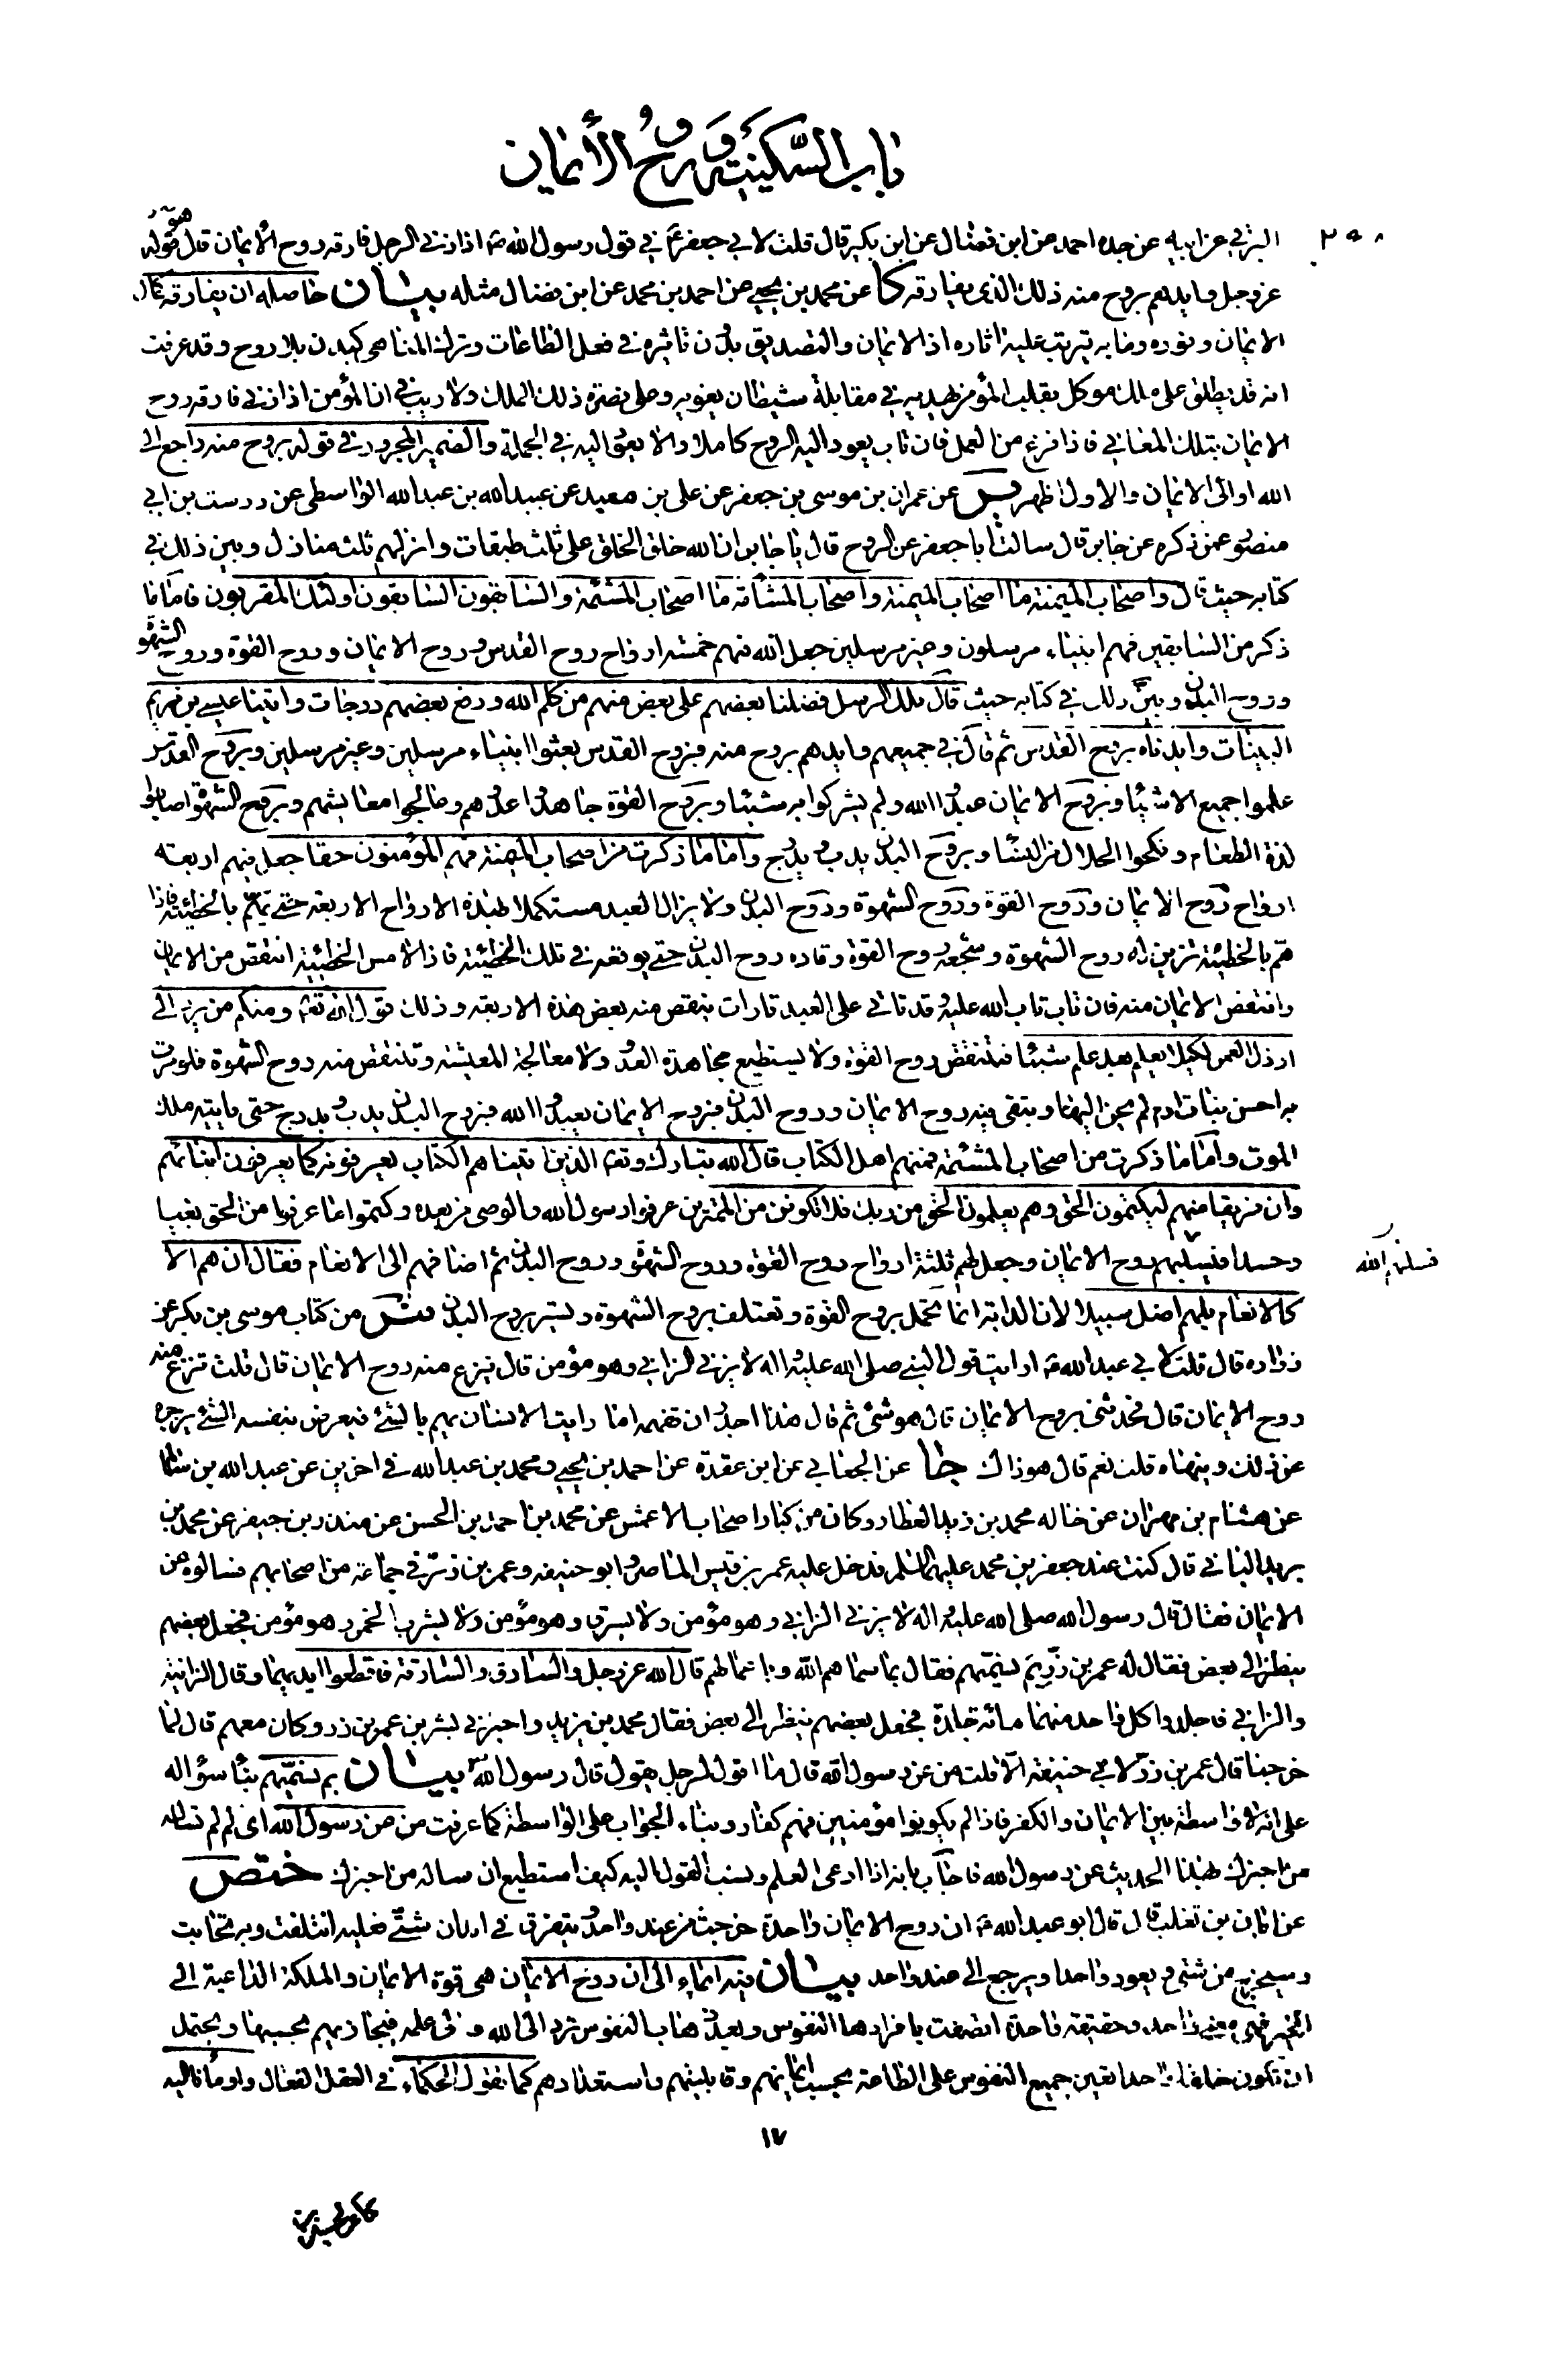 باب السكينة وروح الأيمان
البرقي عن ابيه عن جده احمد عن ابن فضال عن ابن بكير قال قلت لابي جعفر ع في قول رسول الله ص اذا زنى الرجل فارقه روح الأيمان قال هو قوله
عز وجل وايدهم بروح منه ذلك الذي يفارقه كا عن محمد بن يحيى عن احمد بن محمد عن ابن فضال مثله بيان حاصله ان يفارقه كمال
الايمان ونوره وما به يترتب عليه اثاره اذ الايمان والتصديق بدون تاثيره في فعل الطاعات وترك المناهي كبدن بلا روح وقد عرفت
انه قد يطلق على ملك موكل بقلب المؤمن يهديه في مقابلة شيطان يغويه وعلى نصرة ذلك الملك ولا ريب في ان المؤمن اذا زنى فارقه روح
الايمان بتلك المعاني فاذا فرغ من العمل فان تاب يعود اليه الروح كاملا والا يعود اليه في الجملة والضمير المجرور في قوله بروح منه راجع الى
الله او الى الايمان والاول اظهر ير عن عمران بن موسى بن جعفر عن علي بن معبد عن عبيد الله بن عبد الله الواسطى عن درست بن ابي
منصور عمن ذكره عن جابر قال سالت ابا جعفر عن الروح قال يا جابر ان الله خلق الخلق على ثلث طبقات وانزلهم ثلث منازل وبين ذلك في
كتابه حيث قال واصحاب الميمنة ما اصحاب الميمنة واصحاب المشأمة ما اصحاب المشئمة والسابقون السابقون اولئك المقربون فاما ما
ذكر من السابقين فهم انبياء مرسلون وغير مرسلين جعل الله فيهم خمسة ارواح روح القدس وروح الايمان وروح القوة وروح الشهوة
وروح البدن وبين ذلك في كتابه حيث قال تلك الرسل فضلنا بعضهم على بعض منهم من كلم الله ورفع بعضهم درجات واتينا عيسى بن مريم
البينات وايدناه بروح القدس ثم قال في جميعهم وايدهم بروح منه فبروح القدس بعثوا انبياء مرسلين وغير مرسلين وبروح القدس
علموا جميع الاشيا وبروح الايمان عبدوا الله ولم يشركوا به شيئا وبروح القوة جاهدوا عدوهم وعالجوا معايشهم وبروح الشهوة اصابوا
لذة الطعام ونكحوا الحلال من النسا وبروح البدن يدب ويدرج واما ما ذكرت من اصحاب الميمنة فهم المؤمنون حقا جعل فيهم اربعة
ارواح روح الايمان وروح القوة وروح الشهوة وروح البدن ولا يزال العبد مستكملا بهذه الارواح الاربعة حتى يهم بالخطيئة فاذا
هم بالخطيئة تزين له روح الشهوة وشجعه روح القوة وقاده روح البدن حتى يوقعه في تلك الخطيئة فاذا لامس الخطيئة انتقص من الايمان
وانتقص الايمان منه فان تاب تاب الله عليه وقد تاتي على العبد تارات ينقص منه بعض هذه الاربعة وذلك قول الله تعالى ومنكم من يرد الى
ارذل العمر لكيلا يعلم بعد علم شيئا فتنتقص روح القوة ولا يستطيع مجاهدة العدو ولا معالجة المعيشة وتنتقص منه روح الشهوة فلو مرت
به احسن بنات ادم لم يحن اليها ويتقى فيه روح الايمان وروح البدن فبروح الايمان يعبد الله فبروح البدن يدب ويدرج حتى ياتيه ملك
الموت واما ما ذكرت من اصحاب المشئمة فمنهم اهل الكتاب قال الله تبارك وتعالى الذين اتيناهم الكتاب يعرفونه كما يعرفون ابنائهم
وان فريقا منهم ليكتمون الحق وهم يعلمون الحق من ربك فلا تكونن من الممترين عرفوا رسول الله والوصى من بعده وكتموا ما عرفوا من الحق بغيا
وحسدا فيسلبهم روح الايمان وجعل لهم ثلثة ارواح روح القوة وروح الشهوة وروح البدن ثم اضافهم الى الانعام فقال ان هم الا
فسلبهم الله
كالانعام بل هم اضل سبيلا لان الدابة انما تحمل بروح القوة وتعتلف بروح الشهوة وتسير بروح البدن من كتاب موسى بن بكر عن
زرارة قال قلت لابي عبد الله ع ارايت قول النبي صلى الله عليه واله لا يزني الزاني وهو مؤمن قال ينزع منه روح الايمان قال قلت ينزع منه
روح الايمان قال فحدثني بروح الايمان قال هو شئ ثم قال هذا اجدر ان تفهمه اما رايت الانسان يهم بالشئ فيعرض بنفسه الشئ يزجره
عن ذلك وينهاه قلت نعم قال هو ذاك جا عن الجعابي عن ابن عقدة عن احمد بن يحيى ومحمد بن عبد الله في اخرين عن عبد الله بن سالم
عن هشام بن مهران عن خاله محمد بن زيد العطار وكان من كبار اصحاب الاعمش عن محمد بن احمد بن الحسن عن منذر بن جيفر عن محمد بن
يزيد الباني قال كنت عند جعفر بن محمد عليهما السلم فدخل عليه عمر بن قيس الماصر وابو حنيفه وعمر بن ذر في جماعة من اصحابهم فسالوه عن
الايمان فقال قال رسول الله صلى الله عليه اله لا يزني الزاني وهو مؤمن ولا يسرق وهو مؤمن ولا يشرب الخمر وهو مؤمن فجعل بعضهم
ينظر الى بعض فقال له عمر بن ذر بم نسميهم فقال بما سماهم الله وباعمالهم قال الله عز وجل والسارق والسارقة فاقطعوا ايديهما وقال الزانية
والزاني فاجلدوا كل واحد منهما مائة جلدة فجعل بعضهم ينظر الى بعض فقال محمد بن يزيد واخبرني بشر بن عمر بن ذر وكان معهم قال لما
خرجنا قال عمر بن ذر لابي حنيفة الا قلت من عن رسول الله قال ما اقول لرجل يقول قال رسول الله بيان بم نسميهم بنا سؤاله
على انه لا واسطة بين الايمان والكفر فاذا لم يكونوا مؤمنين فهم كفار وبناء الجواب على الواسطة كما عرفت من عن رسول الله اى لم لم تساله
من اخبرك بهذا الحديث عن رسول الله فاجاب بانه اذا ادعى العلم ونسب القول اليه كيف استطيع ان ساله من اخبرك ختص
عن ابان بن تغلب قال قال ابو عبد الله ع ان روح الايمان واحدة خرجت من عند واحد يتفرق في ابدان شتى فعليه ائتلفت وبه تحابت
وسيخرج من شتى ويعود واحدا ويرجع الى عند واحد بيان فيه ايماء الى ان روح الايمان هى قوة الايمان والملكة الداعية الى
الخير فهى معنى واحد وحقيقة واحدة اتصفت بافرادها النفوس وبعد ذهاب النفوس ترد الى الله وفى علمه فيجازيهم بحسبها ويحتمل
ان تكون خلقا واحدا تعين جميع النفوس على الطاعة بحسب ايمانهم وقابليتهم واستعدادهم كما تقول الحكماء في العقل الفعال واومأنا اليه
١٧